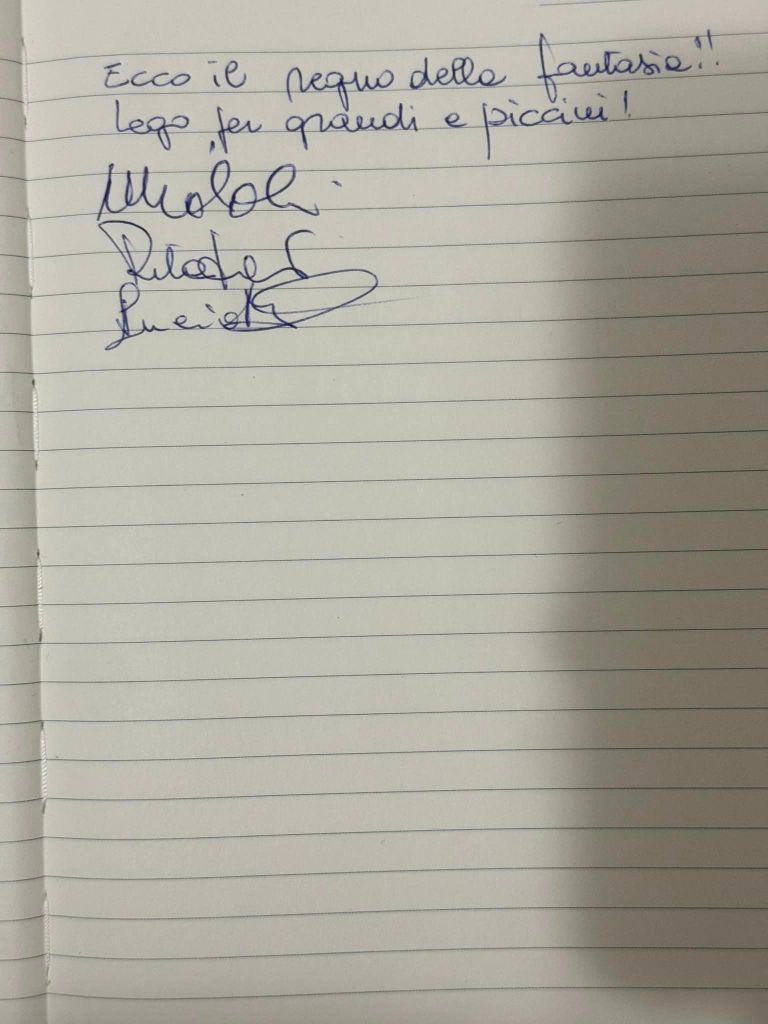 Ecco il regno della fantasia!!
Lego per grandi e piccini!